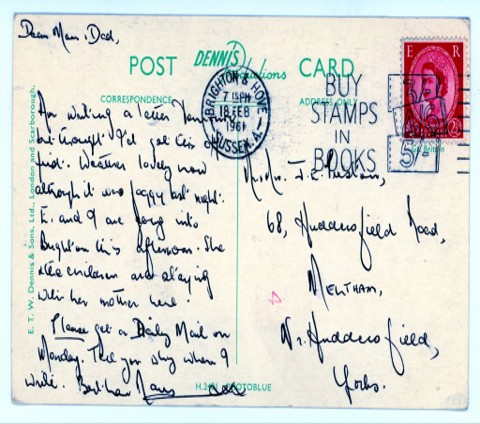 Dear Mum & Dad,
POST
DENNIS
Productions
CARD
CORRESPONDENCE
ADDRESS ONLY
Am writing a letter
but thought I'd get this off
first. Weather lovely now
although it was foggy last night.
E. and I are going into
Brighton this afternoon. She
& the children are staying
with her mother here.
Please get a Daily Mail on
Monday. Tell you why when I
write.
BRIGHTON & HOVE
7 15 PM
18 FEB
1961
SUSSEX
BUY
STAMPS
IN
BOOKS
3/-
5/-
E R
68, Huddersfield Road,
MELTHAM,
Nr. Huddersfield,
Yorks.
E. T. W. Dennis & Sons, Ltd., London and Scarborough.
PHOTOBLUE